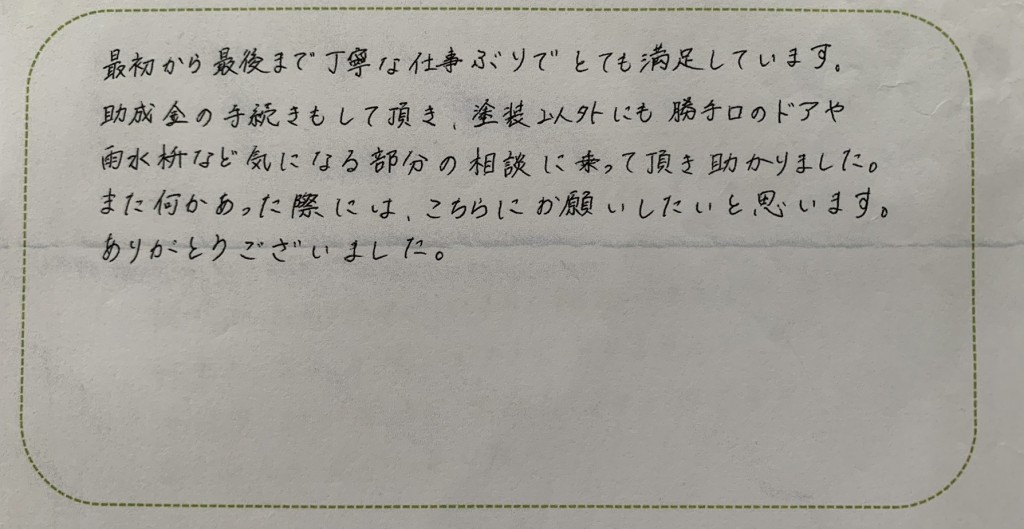 最初から最後まで丁寧な仕事ぶりでとても満足しています。
助成金の手続きもして頂き、塗装以外にも勝手口のドアや
雨水桝など気になる部分の相談に乗って頂き助かりました。
また何かあった際には、こちらにお願いしたいと思います。
ありがとうございました。